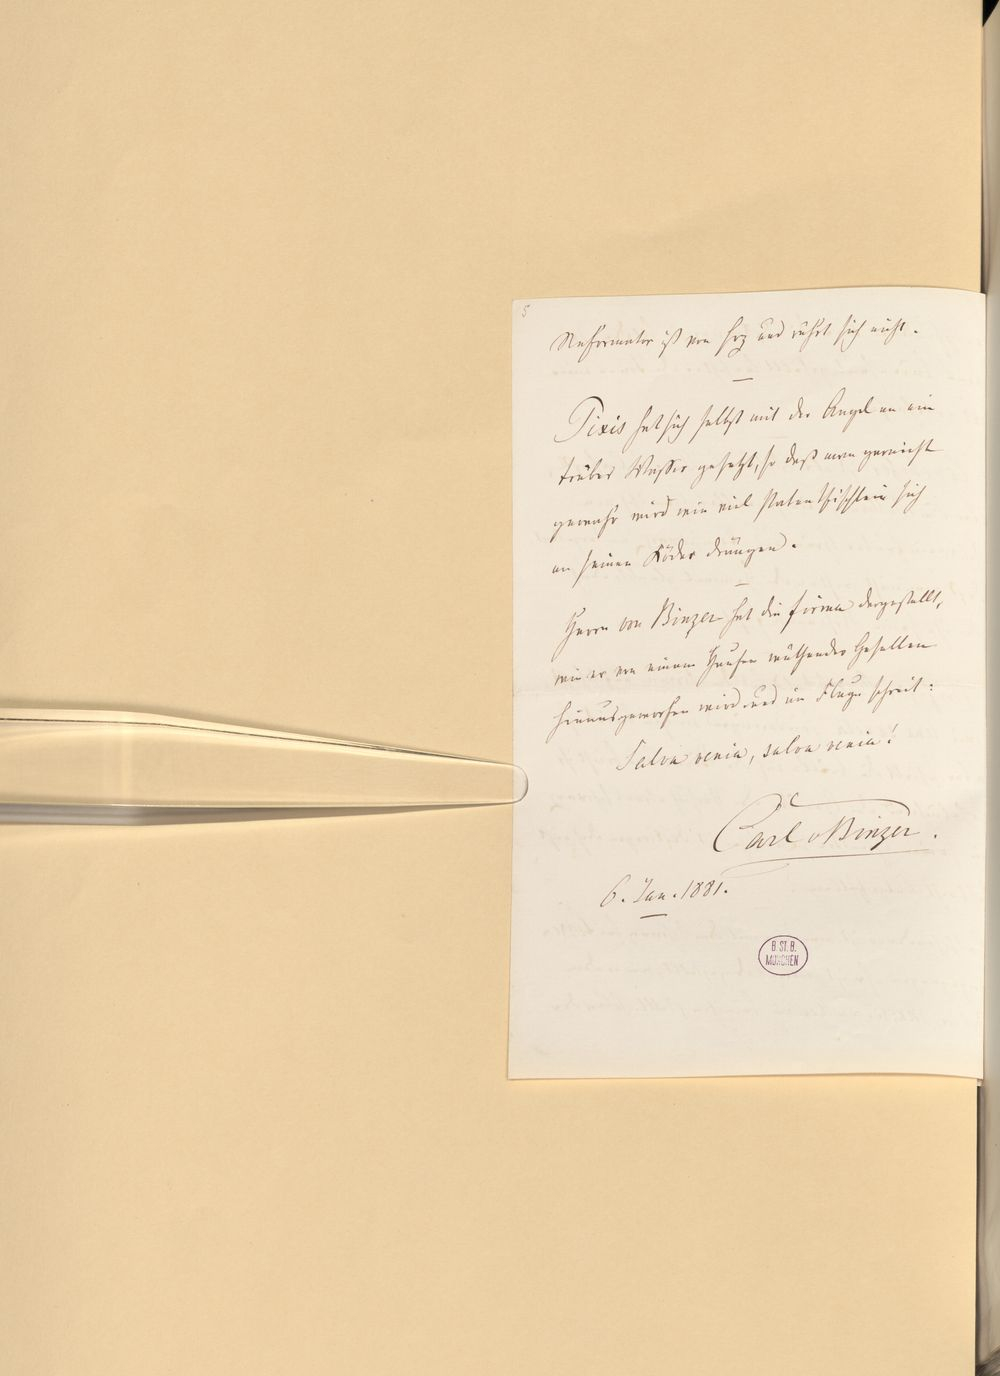 5
Reformator ist von Erz und rührt sich nicht.
—
Pixis hat sich selbst mit der Angel an ein
trübes Wasser gesetzt, so daß man garnicht
gewahr wird wie viel Patentfischlein sich
an seinen Köder drängen.
—
Herrn von Binzer hat die Firma dargestellt,
wie er von einem Haufen wüthender Gesellen
hinausgeworfen wird und im Fluge schreit:
Salva venia, salva venia!
Carl v Binzer.
6. Jan. 1881.
B. ST. B.
MÜNCHEN